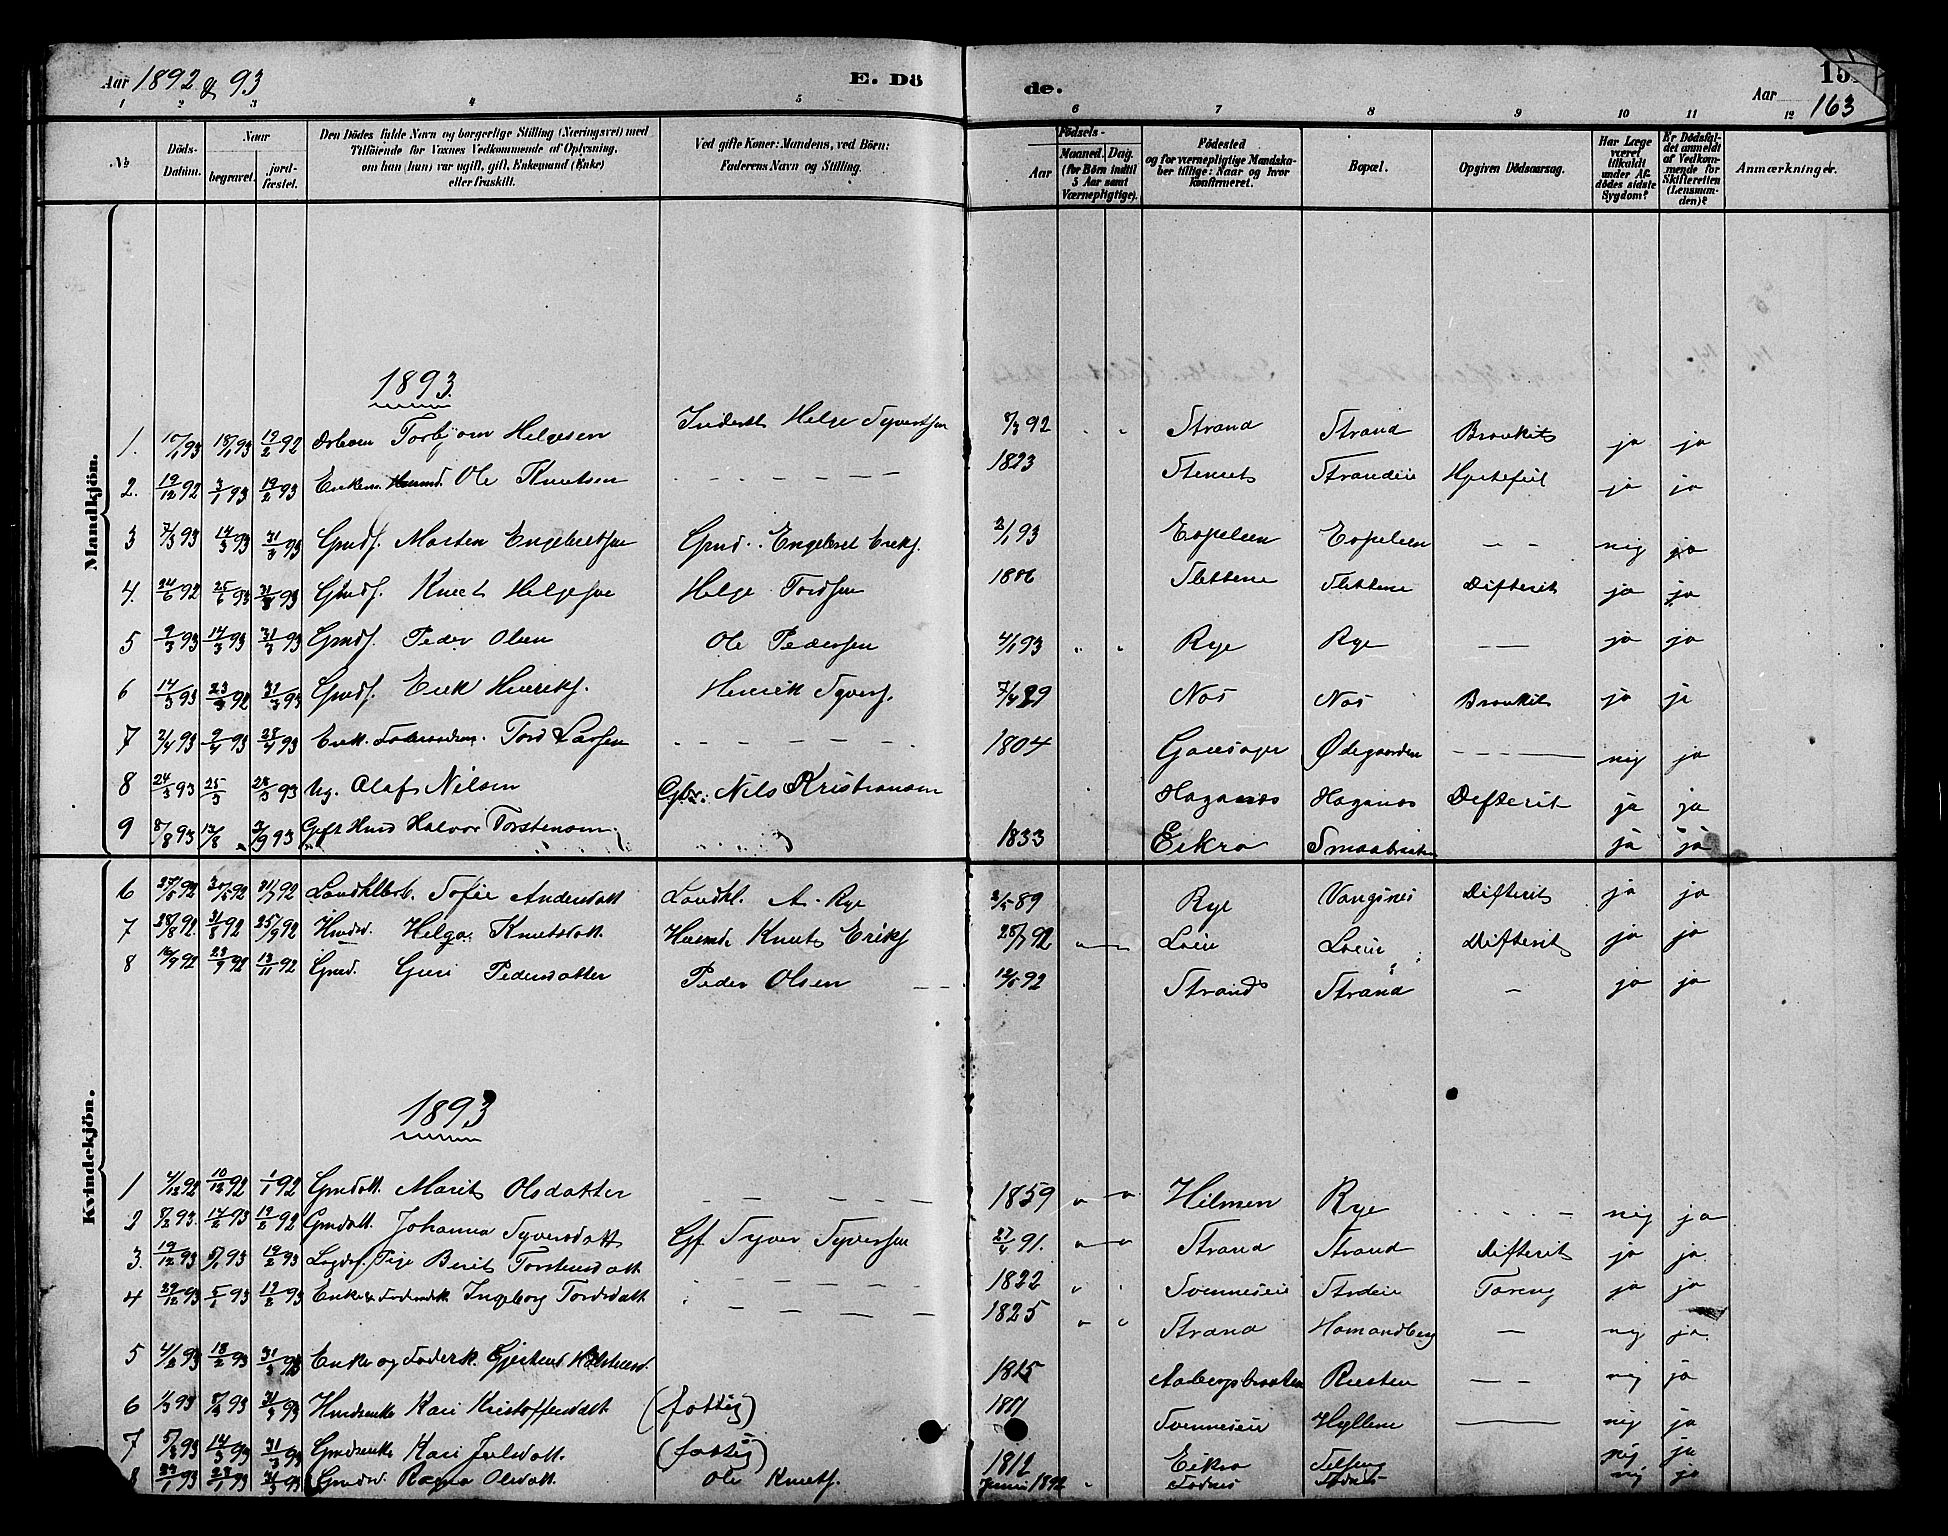 Aar 1892 & 93
E. Dö
de.
151
Aar 163
1 2 3 4 5 6 7 8 9 10 11 12
No
Döds-Datum.
Naar begravet. jord-fæstet.
Den Dödes fulde Navn og borgerlige Stilling (Næringsvei) med Tilföiende for Voxnes Vedkommende af Oplysning, om han (hun) var ugift, gift, Enkemand (Enke) eller fraskilt.
Ved gifte Koner: Mandens, ved Börn: Faderens Navn og Stilling.
Födsels-
Aar
Maaned. Dag. (for Börn indtil 5 Aar samt Værnepligtige).
Födested og for værnepligtige Mandskaber tillige: Naar og hvor konfirmeret.
Bopæl.
Opgiven Dödsaarsag.
Har Læge været tilkaldt under Afdödes sidste Sygdom?
Er Dödsfaldet anmeldt af Vedkommende for Skifteretten (Lensmanden)?
Anmærkninger.
Mandkjön.
1893
1. 10/1 93 18/1 93 19/2 92 Torbjörn Helgesen Helge Syvertsen 8/3 92 Strand Strand Bronkits ja ja
2. 19/12 92 3/1 93 19/2 93 Enkem. Ole Knutsen — — — — 1823 Strandeie Hjertefeil ja ja
3 7/3 93 14/3 93 31/3 93 Gmdf. Morten Engebretsen Gmd. Engebret Erikf. 2/1 93 Espelien Espelien — — nej ja
4. 24/6 92 25/6 93 31/3 93 Gmdf. Knut Helgesen Helge Tordsen Slettene Slettene Difterit ja ja
5 9/3 93 14/3 93 31/3 93 Gmdf. Peder Olsen Ole Pedersen 4/1 93 " " Rye Rye — — ja ja
6 14/3 93 23/3 92 31/3 93 Gmdf. Erik Henrikf. Henrik Syverf. Nos Nos Bronkit ja ja
7 2/4 93 9/4 93 28/4 93 Enk. Tord Larsen — — — — 1804 Gausager Ødegaarden — — — nej ja
8 24/3 93 25/3 28/3 93 Ug. Olaf Nilsen Gbr. Nils Kristiansen Haganes Haganes Difterit ja ja
9 8/8 93 13/8 3/9 93 Gift Hmd Halvor Torstensen 1833 Eikro Smaabraaten ja ja
Kvindekjön.
6 27/5 92 30/5 92 31/7 92 Landhlbarb. Sofie Andersdatt Landhl. A. Rye 2/5 89 Rye Vangsnes Difterit ja ja
7 28/8 92 31/8 92 25/9 92 Hmdsd. Helga Knutsdatt Husmd. Knut Erikf 28/7 92 Loeie Loeie Difterit ja ja
8 16/9 92 23/9 92 13/11 92 Gmd. Guri Pedersdatter Peder Olsen 12/5 92 Strand Strand — ja ja
1893
1 4/12 92 10/12 92 1/1 92 Gmdatt. Marit Olsdatter — — — — 1859 Hilmen Rye — nej ja
2 8/2 93. 14/2 93 19/2 92 Gmdatt. Johanna Syversdatt Gf Syver Syversen 27/4 91. Strand Strand Difterit ja ja
3. 19/12 93 5/1 93 19/2 93 Pige Berit Torstensdatt — — — — 1822 Svenneseie Tæring ja ja
4 29/12 93 5/1 93 19/2 93 Enke Ingeborg Tordsdatt — — — — 1825 Strand Hamandberg — nej ja
5 4/2 93 18/2 93 31/3 93 Enke og Foderk. 1815 Aabergsbraaten Rusten — — nej ja
6 1/3 93 8/3 93 31/3 93 Hmdsenke Kari Kristoffersdatt (fattig) Svenneseie Hyllene — nej ja
7 5/3 93 14/3 93 31/3 93 Gmdsenke Kari Juelsdatt. (fattig) 1812 Eikro nej ja
8 Gmdsd Ragna Olsdatt. Ole Knutf. Juni 1892 Fodnes Fodnes nej ja